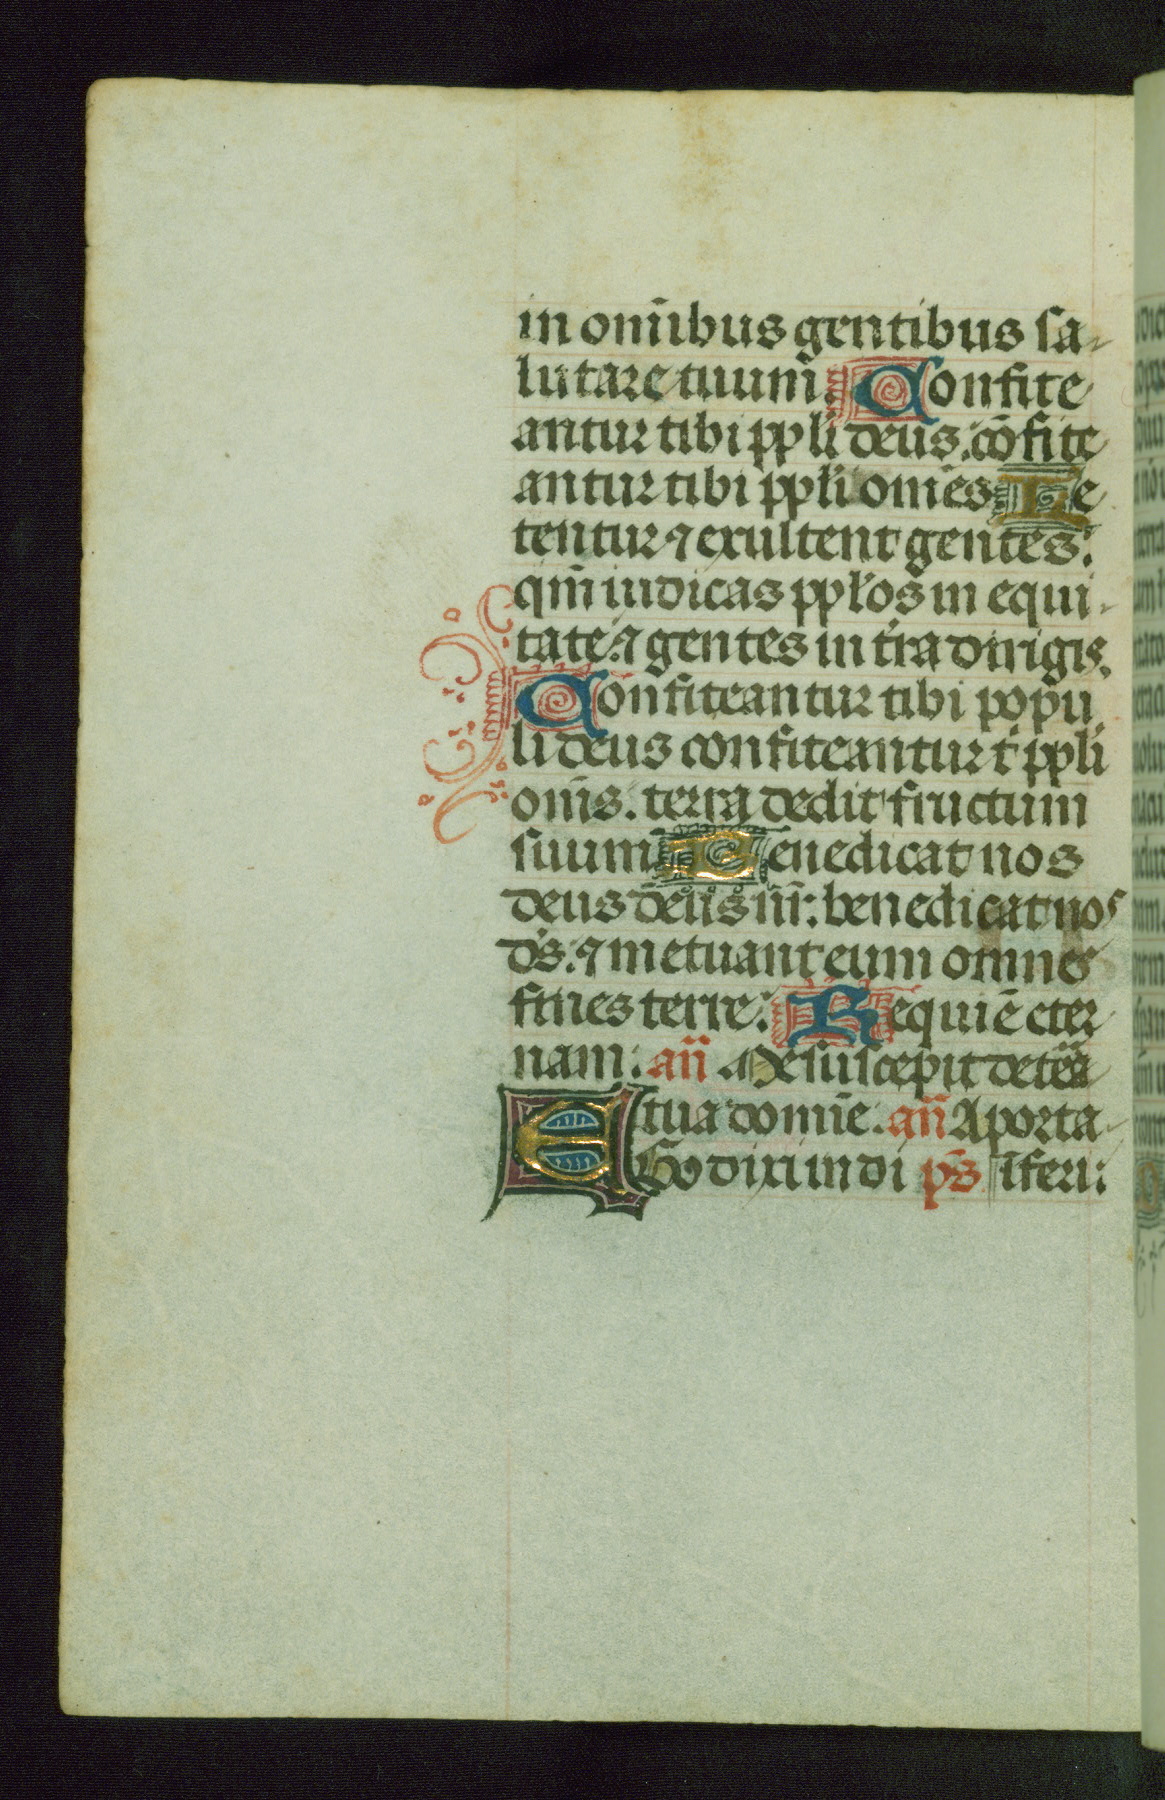 in om̄ibus gentibus sa-
lutare tuum̄. Confite
antur tibi ppl̄i deus. cōfite
antur tibi ppl̄i om̄es Le
tentur ⁊ exultent gentes:
qm̄ iudicas ppl̄os in equi-
tate: ⁊ gentes in tr̄a dirigis.
Confiteantur tibi popu
li deus confiteantur t' ppl̄i
om̄s. terra dedit fructum
suum Benedicat nos
deus deus nr̄: benedicat nos
ds̄: ⁊ metuant eum omnes
fines terre: Requiē eter
nam: an̄ Me suscepit dexte͞a
tua domi͞e. an̄ A porta
EGo dixi in di ps̄ īferi: